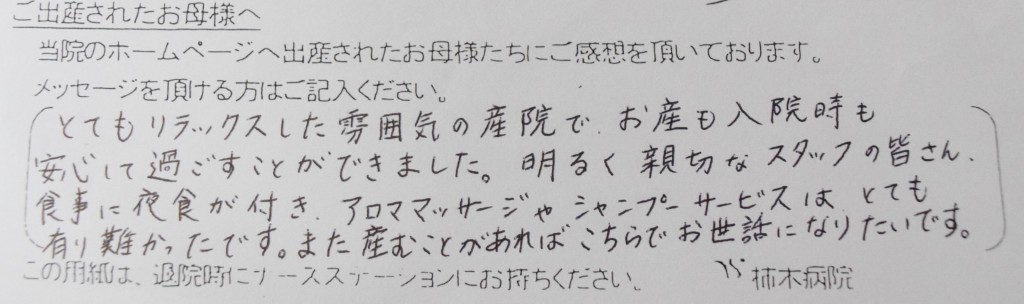 ご出産されたお母様へ
当院のホームページへ出産されたお母様たちにご感想を頂いております。
メッセージを頂ける方はご記入ください。
とてもリラックスした雰囲気の産院で、お産も入院時も
安心して過ごすことができました。明るく親切なスタッフの皆さん、
食事に夜食が付き、アロママッサージやシャンプーサービスは とても
有り難かったです。また産むことがあればこちらでお世話になりたいです。
この用紙は、退院時にナースステーションにお持ちください。 柿木病院